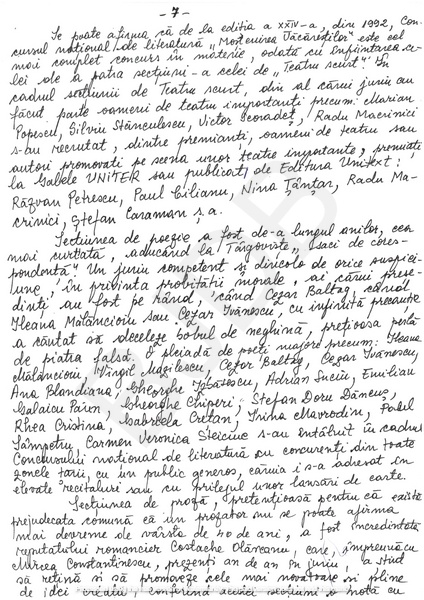 - 7 -
Se poate afirma că de la ediția a XXIV-a, din 1992, Con-
cursul național de literatură „Moștenirea Văcăreștilor" este cel
mai complet concurs în materie, odată cu înființarea ce-
lei de a patra secțiuni - a celei de „Teatru scurt". În
cadrul secțiunii de Teatru scurt, din al cărui juriu au
făcut parte oameni de teatru importanți precum: Marian
Popescu, Silviu Stănculescu, Victor Cornadet, Radu Macrinici
s-au recrutat, dintre premianți, oameni de teatru sau
autori promovați pe scena unor teatre importante, premiați
la Galele UNITER sau publicați de Editura Unitext:
Răzvan Petrescu, Paul Cilianu, Nina Țânțar, Radu Ma-
crinici, Ștefan Caraman ș.a.
Secțiunea de poezie a fost de-a lungul anilor, cea
mai curtată, aducând la Târgoviște, „saci de cores-
pondență". Un juriu competent și dincolo de orice suspici-
une, în privința probității morale, ai cărui preșe-
dinți au fost pe rând, când Cezar Baltag, când
Ileana Mălăncioiu sau Cezar Ivănescu, cu infinită precauție
a căutat să deceleze bobul de neghină, prețioasa perlă
de piatra falsă. O pleiadă de poeți majori precum: Ileana
Mălăncioiu, Virgil Mazilescu, Cezar Baltag, Cezar Ivănescu,
Ana Blandiana, Gheorghe Tomozescu, Adrian Suciu, Emilian
Galaicu Păun, Gheorghe Chiperi, Stefan Doru Dăncuș,
Rhea Cristina, Gabriela Crețan, Irina Mavrodin, Paul
Sâmpetru, Carmen Veronica Steiciuc s-au întâlnit în cadrul
Concursului național de literatură cu concurenți din toate
zonele țării, cu un public generos, căruia i s-a adresat în
elevate recitaluri sau cu prilejul unor lansări de carte.
Secțiunea de proză, pretențioasă pentru că există
prejudecata comună că un prozator nu se poate afirma
mai devreme de vârsta de 40 de ani, a fost încredințată
reputatului romancier Costache Olăreanu, care, împreună cu
Mircea Constantinescu, prezenți an de an în juriu, a știut
să rețină și să promoveze cele mai novatoare și pline
de idei creații conferind acestei secțiuni o notă cu